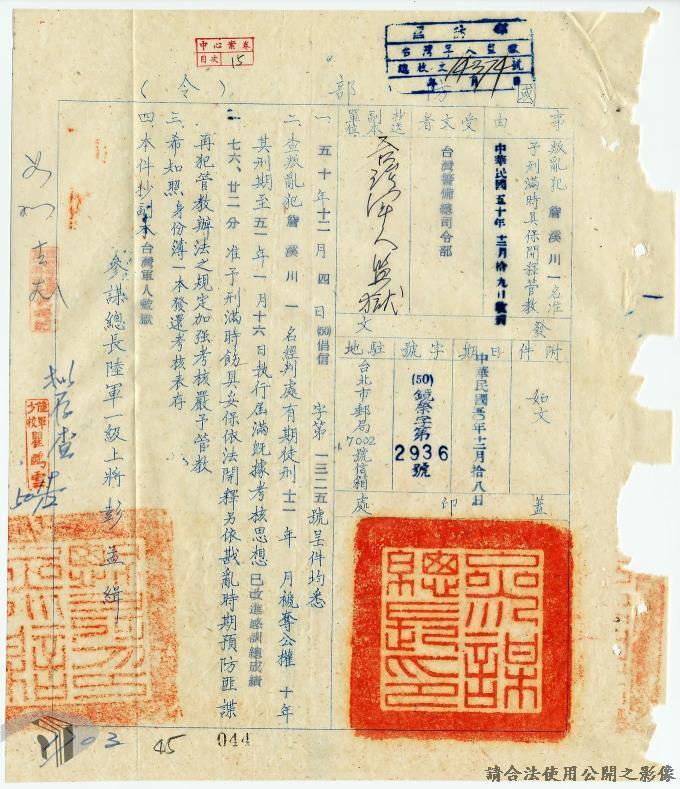 中心案卷
目次 15
收號
台灣軍人監獄
總收文 14374 號
年 月 日
國防部（令）
事由
叛亂犯 詹溪川 一名准
予刑滿時具保開釋管教
受文者
中華民國五十年十二月拾九日收到
台灣警備總司令部
抄送副本單位
台灣軍人監獄
附件 如文
發文
日期 中華民國五〇年十二月拾八日
字號 (50)鏡繁字第2936號
駐地 台北市郵局7002號信箱
蓋印處
一、五十年十二月四日(50)倡信字第一三二五號呈件均悉
二、查叛亂犯 詹溪川 一名經判處有期徒刑 十二 年 月褫奪公權 十年
其刑期至五一年一月十六日執行屆滿既據考核思想 已改進感訓總成績
七六、廿二分 准予刑滿時飭具妥保依法開釋另依戡亂時期預防匪諜
再犯管教辦法之規定加强考核嚴予管教
三、希知照身份簿一本發還考核表存
四、本件抄副本台灣軍人監獄
參謀總長陸軍一級上將彭孟緝
參謀總長印
擬存查
陸軍少校
03
45
044
請合法使用公開之影像